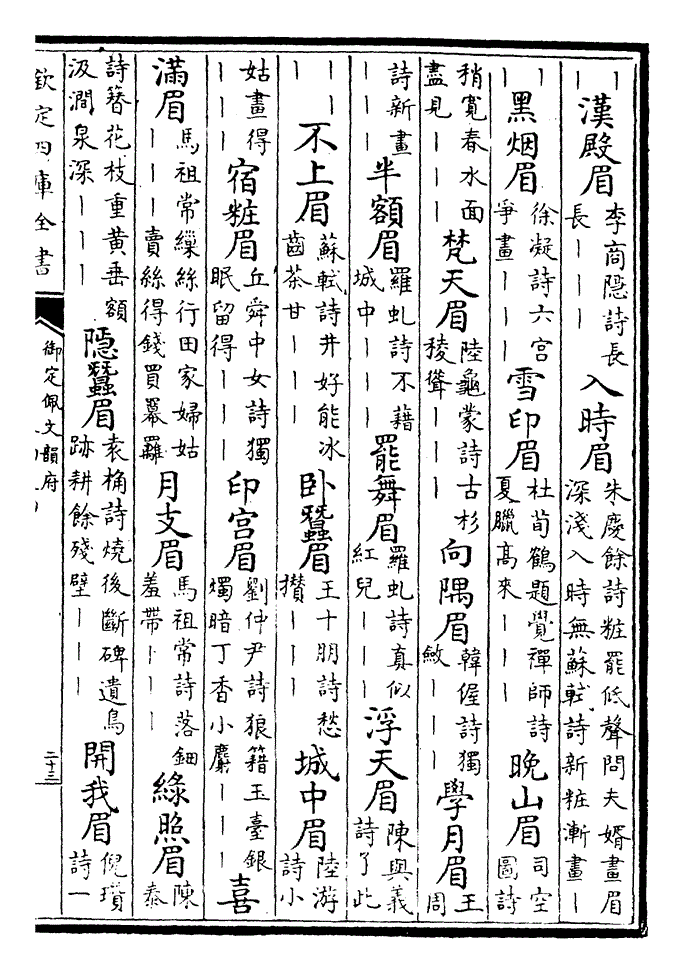 ｜｜漢殿眉李商隱詩長長｜｜｜入時眉朱慶餘詩粧罷低聲問夫婿畫眉深淺入時無蘇軾詩新粧漸畫｜
｜｜黑烟眉徐凝詩六宫爭畫｜｜｜雪印眉杜荀鶴題覺禪師詩夏臘髙來｜｜｜晚山眉司空圖詩
稍寛春水面盡見｜｜｜梵天眉陸龜蒙詩古杉稜聳｜｜｜向隅眉韓偓詩獨斂｜｜｜學月眉王周
詩新畫｜｜｜半額眉羅虬詩不藉城中｜｜｜罷舞眉羅虬詩真似紅兒｜｜｜浮天眉陳與義詩了此
｜｜｜不上眉蘇軾詩井好能冰齒茶甘｜｜｜卧蠶眉王十朋詩愁攢｜｜｜城中眉陸游詩小
姑畫得｜｜｜宿粧眉丘舜中女詩獨眠留得｜｜｜印宫眉劉仲尹詩狼籍玉臺銀燭暗丁香小麝｜｜｜喜
滿眉馬祖常繅絲行田家婦姑｜｜｜賣絲得錢買羃䍦月支眉馬祖常詩落鈿羞帶｜｜｜綠照眉陳泰
詩簪花枝重黄垂額汲澗泉深｜｜｜隱蠶眉袁桷詩燒後斷碑遺鳥跡耕餘殘壁｜｜｜開我眉倪瓚詩一
欽定四庫全書
御定佩文韻府
二十三